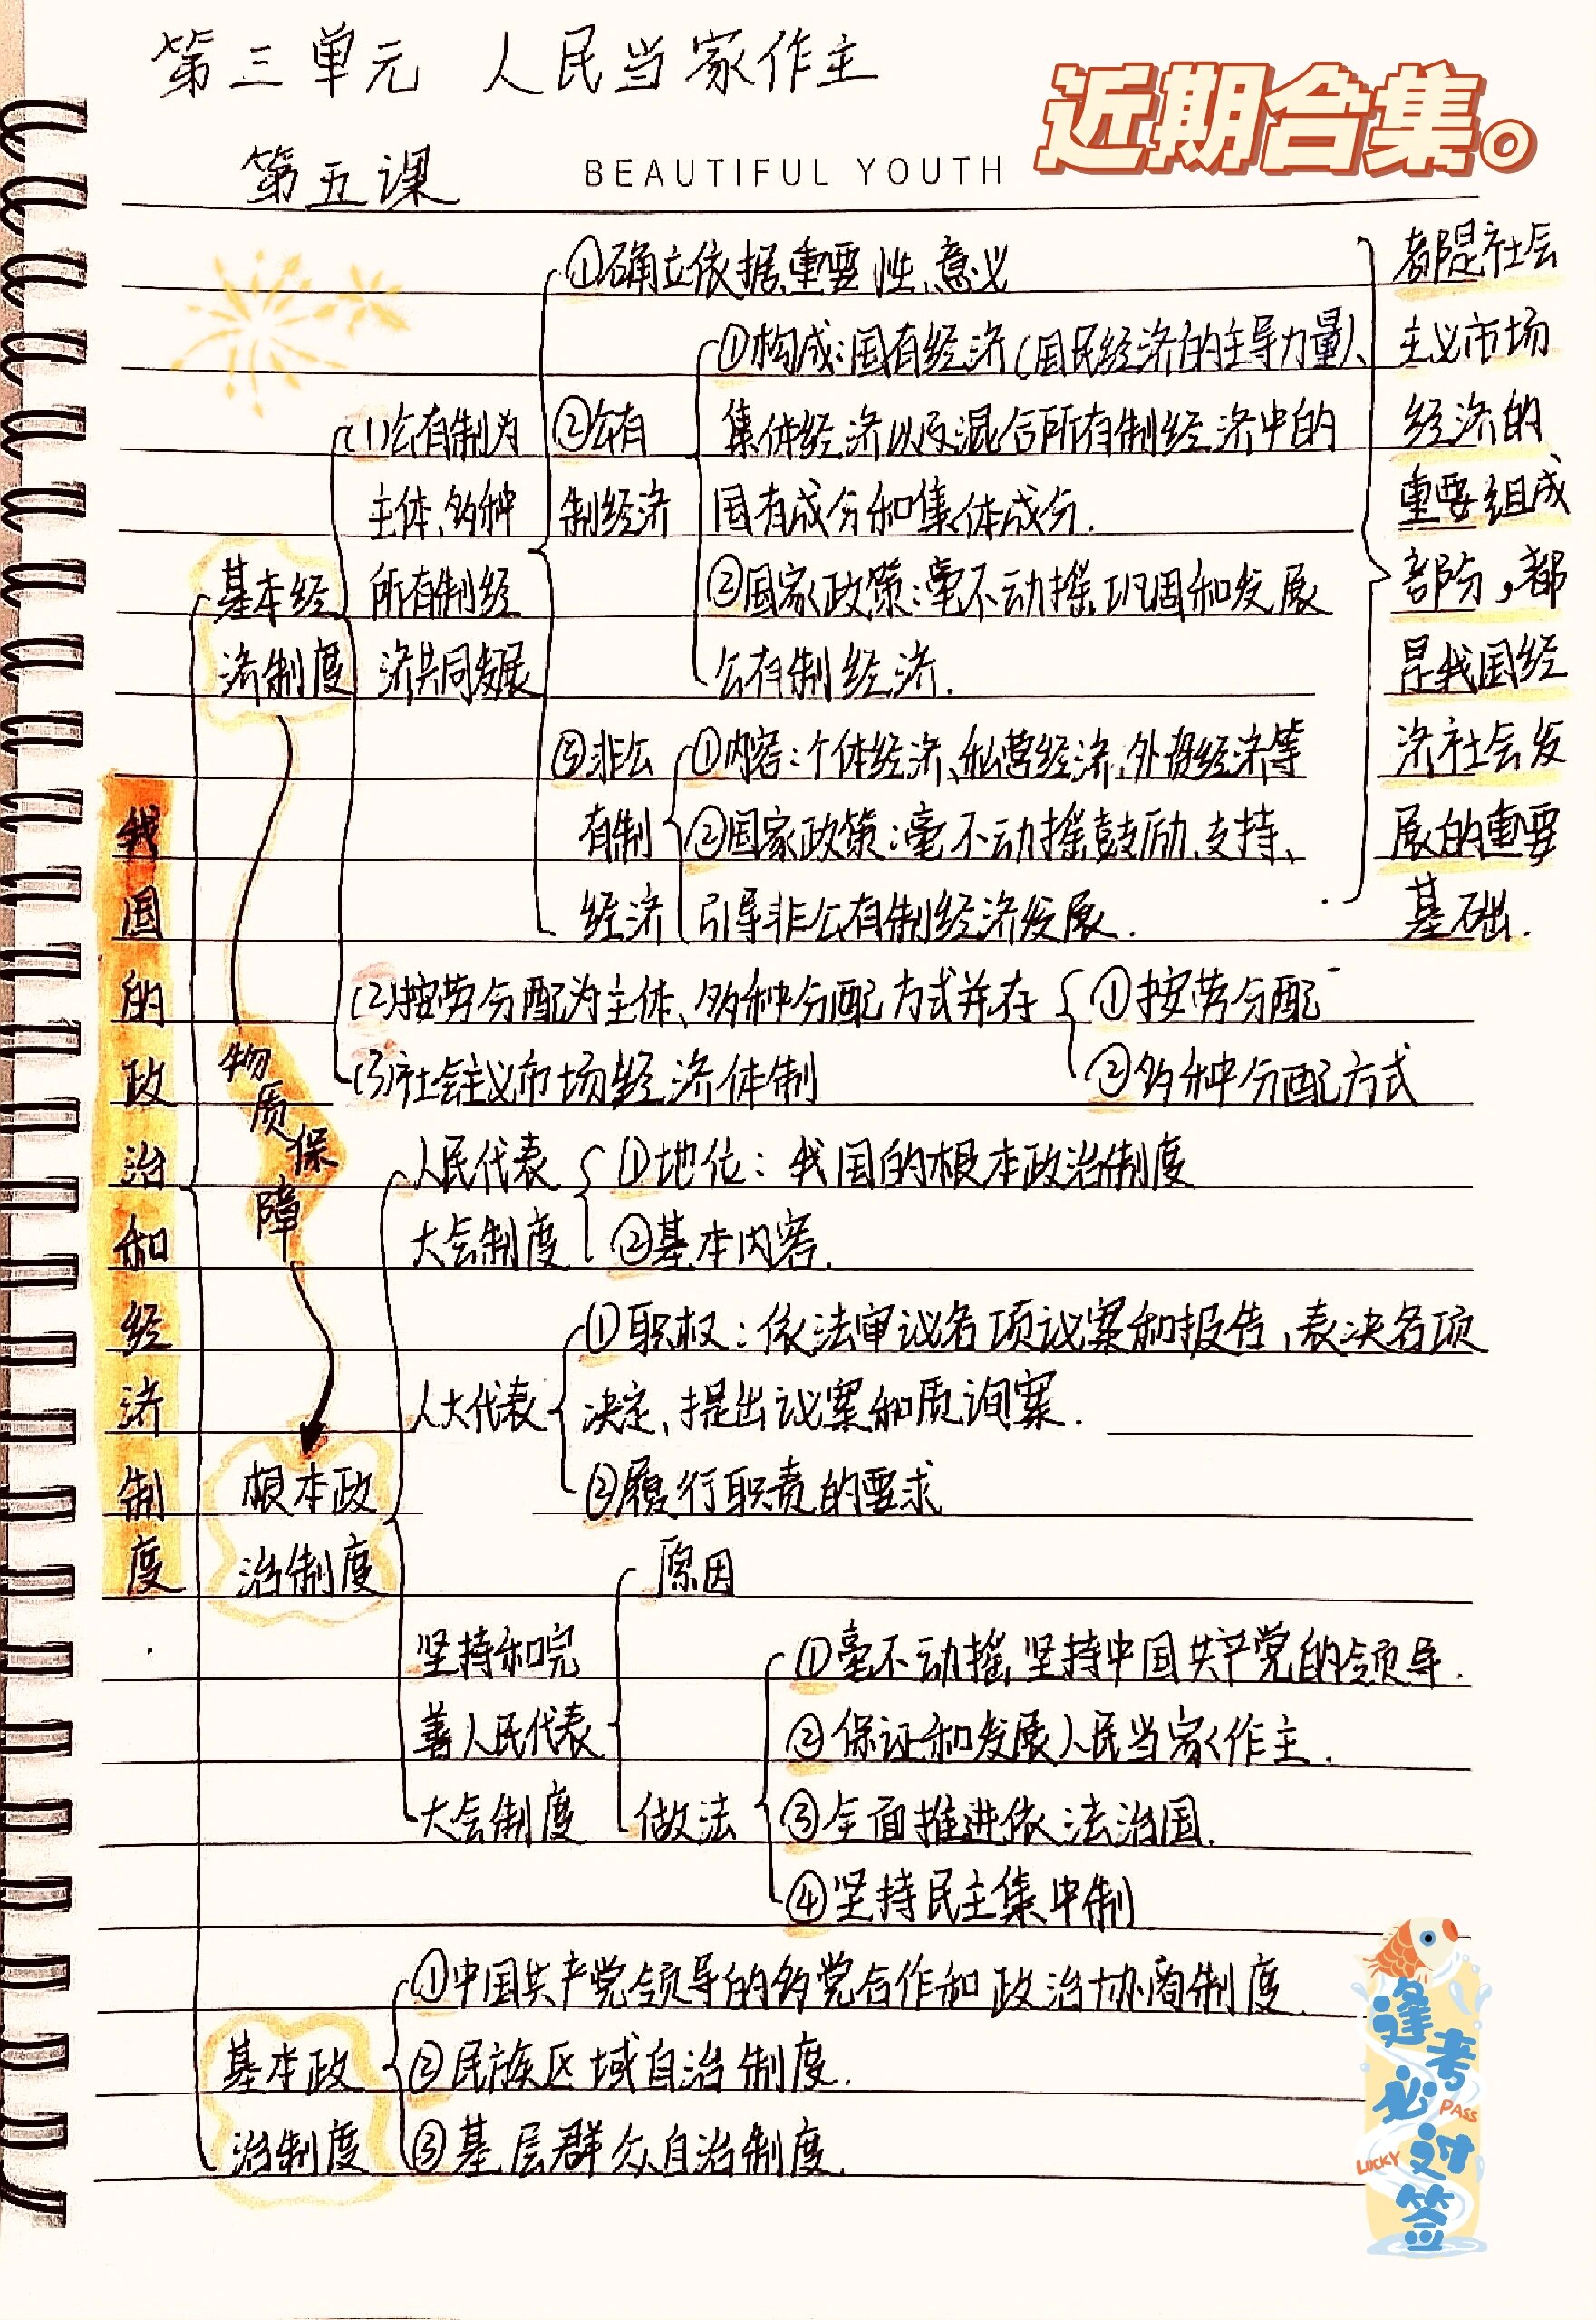 第三单元 人民当家作主
近期合集。
第五课
BEAUTIFUL YOUTH
我国的政治和经济制度
基本经
济制度
物质保障
(1)公有制为
主体、多种
所有制经
济共同发展
①确立依据、重要性、意义
②公有
制经济
①构成:国有经济(国民经济的主导力量)、
集体经济以及混合所有制经济中的
国有成分和集体成分.
②国家政策:毫不动摇巩固和发展
公有制经济.
③非公
有制
经济
①内容:个体经济、私营经济、外资经济等
②国家政策:毫不动摇鼓励、支持、
引导非公有制经济发展.
都是社会
主义市场
经济的
重要组成
部分,都
是我国经
济社会发
展的重要
基础.
(2)按劳分配为主体、多种分配方式并存
①按劳分配
②多种分配方式
(3)社会主义市场经济体制
根本政
治制度
人民代表
大会制度
①地位:我国的根本政治制度
②基本内容.
人大代表
①职权:依法审议各项议案和报告,表决各项
决定、提出议案和质询案.
②履行职责的要求
坚持和完
善人民代表
大会制度
原因
做法
①毫不动摇坚持中国共产党的领导.
②保证和发展人民当家作主.
③全面推进依法治国.
④坚持民主集中制
基本政
治制度
①中国共产党领导的多党合作和政治协商制度.
②民族区域自治制度.
③基层群众自治制度.
逢考必过签
PASS
LUCKY